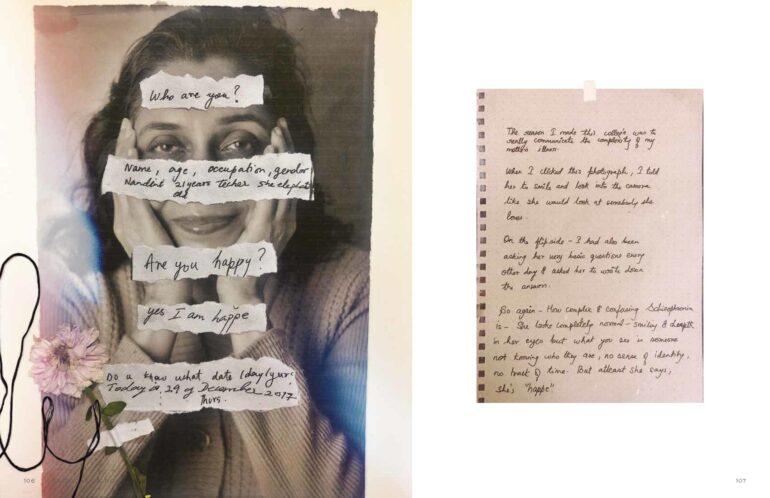 Who are you?
Name, age, occupation, gender
Nandini 21years techer she elephant
old
Are you happy?
yes I am happe
Do u know what date /day/year?
Today is 29 of December 2017
Thurs.
106
The reason I made this collage was to
really communicate the complexity of my
mother's illness.
When I clicked this photograph, I told
her to smile and look into the camera
like she would look at somebody she
loves.
On the flipside - I had also been
asking her very basic questions every
other day & asked her to write down
the answers.
So again - How complex & confusing Schizophrenia
is - She looks completely normal - smiling & depth
in her eyes but what you see is someone
not knowing who they are, no sense of identity,
no track of time. But atleast she says,
she's "happe"
107